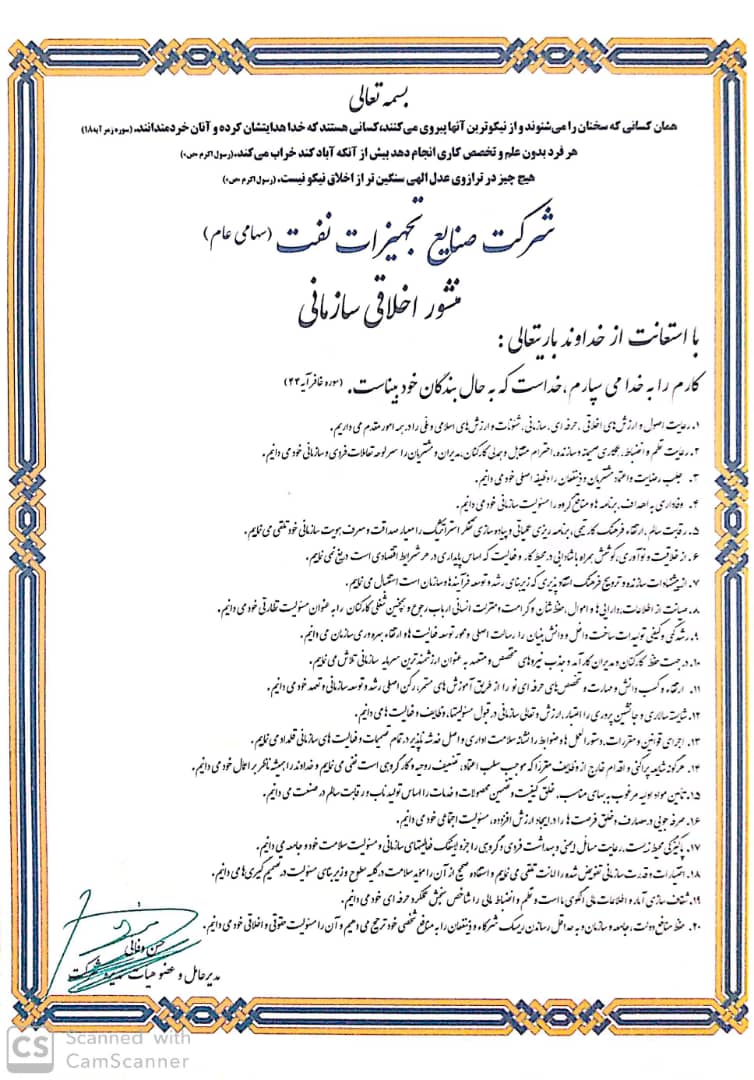 بسمه تعالی
همان کسانی که سخنان را می‌شنوند و از نیکوترین آنها پیروی می‌کنند، کسانی هستند که خدا هدایتشان کرده و آنان خردمندانند. (سوره زمر آیه ۱۸)
هر فرد بدون علم و تخصص کاری انجام دهد بیش از آنکه آباد کند خراب می‌کند. (رسول اکرم «ص»)
هیچ چیز در ترازوی عدل الهی سنگین تر از اخلاق نیکو نیست. (رسول اکرم «ص»)
شرکت صنایع تجهیزات نفت (سهامی عام)
منشور اخلاقی سازمانی
با استعانت از خداوند باریتعالی :
کارم را به خدا می سپارم، خداست که به حال بندگان خود بیناست. (سوره غافر آیه ۴۴)
۱. رعایت اصول و ارزش‌های اخلاقی، حرفه ای، سازمانی، شئونات و ارزش‌های اسلامی و ملی را در همه امور مقدم می داریم.
۲. رعایت نظم و انضباط، همکاری صمیمانه و سازنده، احترام متقابل و همدلی کارکنان، مدیران و مشتریان را سرلوحه تعاملات فردی و سازمانی خود می دانیم.
۳. جلب رضایت و اعتماد مشتریان و ذینفعان را وظیفه اصلی خود می دانیم.
۴. وفاداری به اهداف، برنامه ها و منافع گروه را مسئولیت سازمانی خود می دانیم.
۵. رقابت سالم، ارتقاء فرهنگ کار تیمی، برنامه ریزی عملیاتی و پیاده سازی تفکر استراتژیک را معیار صداقت و معرف هویت سازمانی خود تلقی می نماییم.
۶. از خلاقیت و نوآوری، کوشش همراه با شادابی در محیط کار و فعالیت که اساس پایداری در هر شرایط اقتصادی است دریغ نمی نماییم.
۷. از پیشنهادات سازنده و ترویج فرهنگ انتقاد پذیری که زیربنای رشد و توسعه فرآیندها و سازمان است استقبال می نماییم.
۸. صیانت از اطلاعات، دارایی ها و اموال، حفظ شأن و کرامت و منزلت انسانی ارباب رجوع و همچنین شغلی کارکنان را به عنوان مسئولیت نظارتی خود می دانیم.
۹. رشد کمی و کیفی تولیدات ساخت داخل و دانش بنیان را رسالت اصلی و محور توسعه فعالیت ها و ارتقاء بهره وری سازمان می دانیم.
۱۰. در جهت حفظ کارکنان و مدیران کارآمد و جذب نیروهای متخصص و متعهد به عنوان ارزشمندترین سرمایه سازمانی تلاش می نماییم.
۱۱. ارتقاء و کسب دانش و مهارت و تخصص‌های حرفه ای نو را از طریق آموزش های مستمر، رکن اصلی رشد و توسعه سازمانی و تعهد خود می دانیم.
۱۲. شایسته سالاری و جانشین پروری را اعتبار، ارزش و تعالی سازمانی در قبول مسئولیتها، وظایف و فعالیت ها می دانیم.
۱۳. اجرای قوانین و مقررات، دستورالعمل ها و ضوابط را نشانه سلامت اداری و اصل خدشه ناپذیر در تمام تصمیمات و فعالیت های سازمانی قلمداد می نماییم.
۱۴. هرگونه شایعه پراکنی و اقدام خارج از وظایف مقرر را که موجب سلب اعتماد، تضعیف روحیه و کار گروهی است نفی می نماییم و خداوند را همیشه ناظر بر اعمال خود می دانیم.
۱۵. تأمین مواد اولیه مرغوب به بهای مناسب، خلق کیفیت و تضمین محصولات و خدمات را اساس تولید ناب و رقابت سالم در صنعت می دانیم.
۱۶. صرفه جویی در مصارف و خلق فرصت ها را در ایجاد ارزش افزوده، مسئولیت اجتماعی خود می دانیم.
۱۷. پاکیزگی محیط زیست، رعایت مسائل ایمنی و بهداشت فردی و گروهی را جزء لاینفک فعالیتهای سازمانی و مسئولیت سلامت خود و جامعه می دانیم.
۱۸. اختیارات و قدرت سازمانی تفویض شده را امانت تلقی می نماییم و استفاده صحیح از آن را مؤید سلامت در کلیه سطوح و زیربنای مسئولیت در تصمیم گیری ها می دانیم.
۱۹. شفاف سازی آمار و اطلاعات مالی الگوی ما است و نظم و انضباط مالی را شاخص سنجش عملکرد حرفه ای خود می دانیم.
۲۰. حفظ منافع دولت، جامعه و سازمان و به حداقل رساندن ریسک شرکاء و ذینفعان را به منافع شخصی خود ترجیح می دهیم و آن را مسئولیت حقوقی و اخلاقی خود می دانیم.
مدیرعامل و عضو هیات مدیره شرکت
CS Scanned with
CamScanner